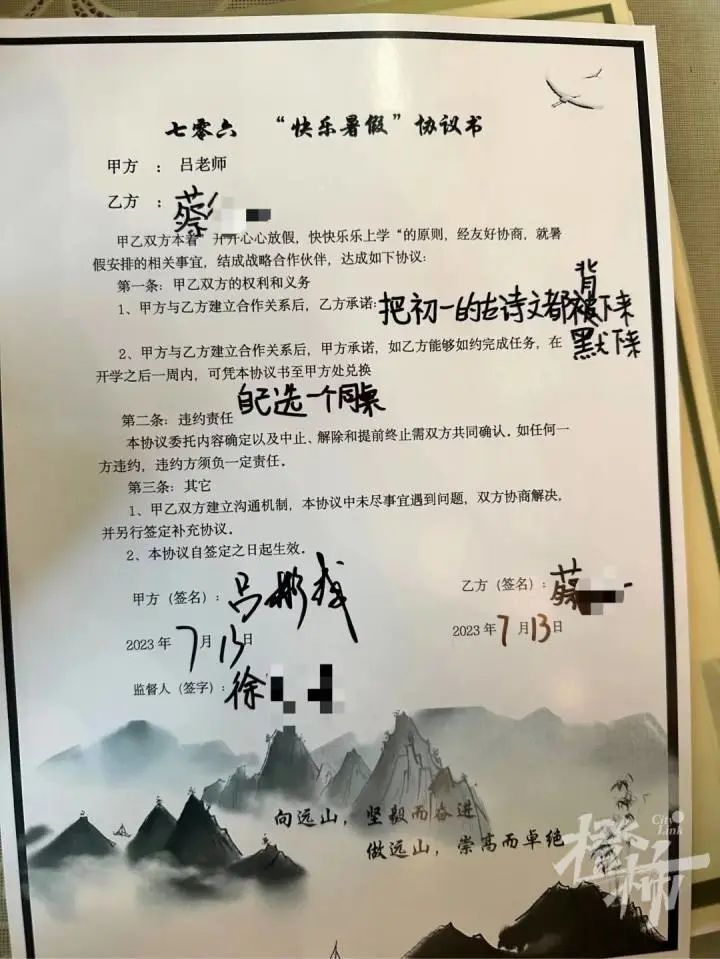 七零六 “快乐暑假”协议书
甲方 : 吕老师
乙方 : 蔡
甲乙双方本着“开开心心放假,快快乐乐上学“的原则,经友好协商,就暑
假安排的相关事宜,结成战略合作伙伴,达成如下协议:
第一条:甲乙双方的权利和义务
1、甲方与乙方建立合作关系后,乙方承诺:把初一的古诗文都被下来
背
默下来
2、甲方与乙方建立合作关系后,甲方承诺,如乙方能够如约完成任务,在
开学之后一周内,可凭本协议书至甲方处兑换
自己选一个同桌
第二条:违约责任
本协议委托内容确定以及中止、解除和提前终止需双方共同确认。如任何一
方违约,违约方须负一定责任。
第三条:其它
1、甲乙双方建立沟通机制,本协议中未尽事宜遇到问题,双方协商解决,
并另行签定补充协议。
2、本协议自签定之日起生效。
甲方(签名):吕彬
乙方(签名):蔡
2023年7月13日
2023年7月13日
监督人(签字):徐
向远山,坚毅而奋进
做远山,崇高而卓绝
City Link
橙柿